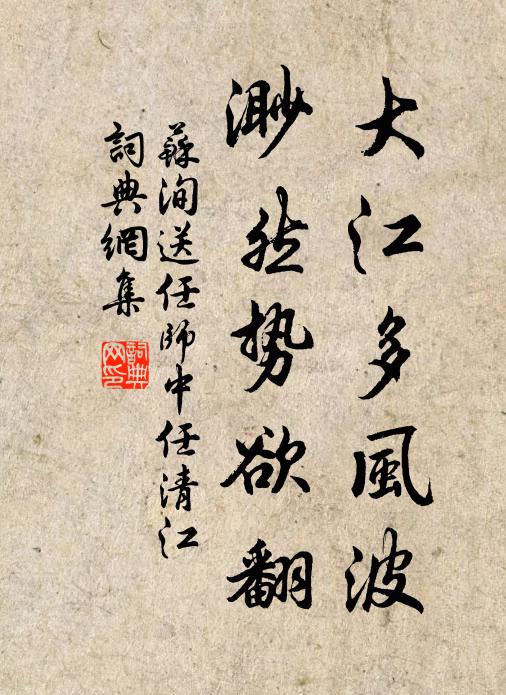 大江多風波
渺然勢欲翻
蘇洵送任師中任清江
詞典網集
詞典网印